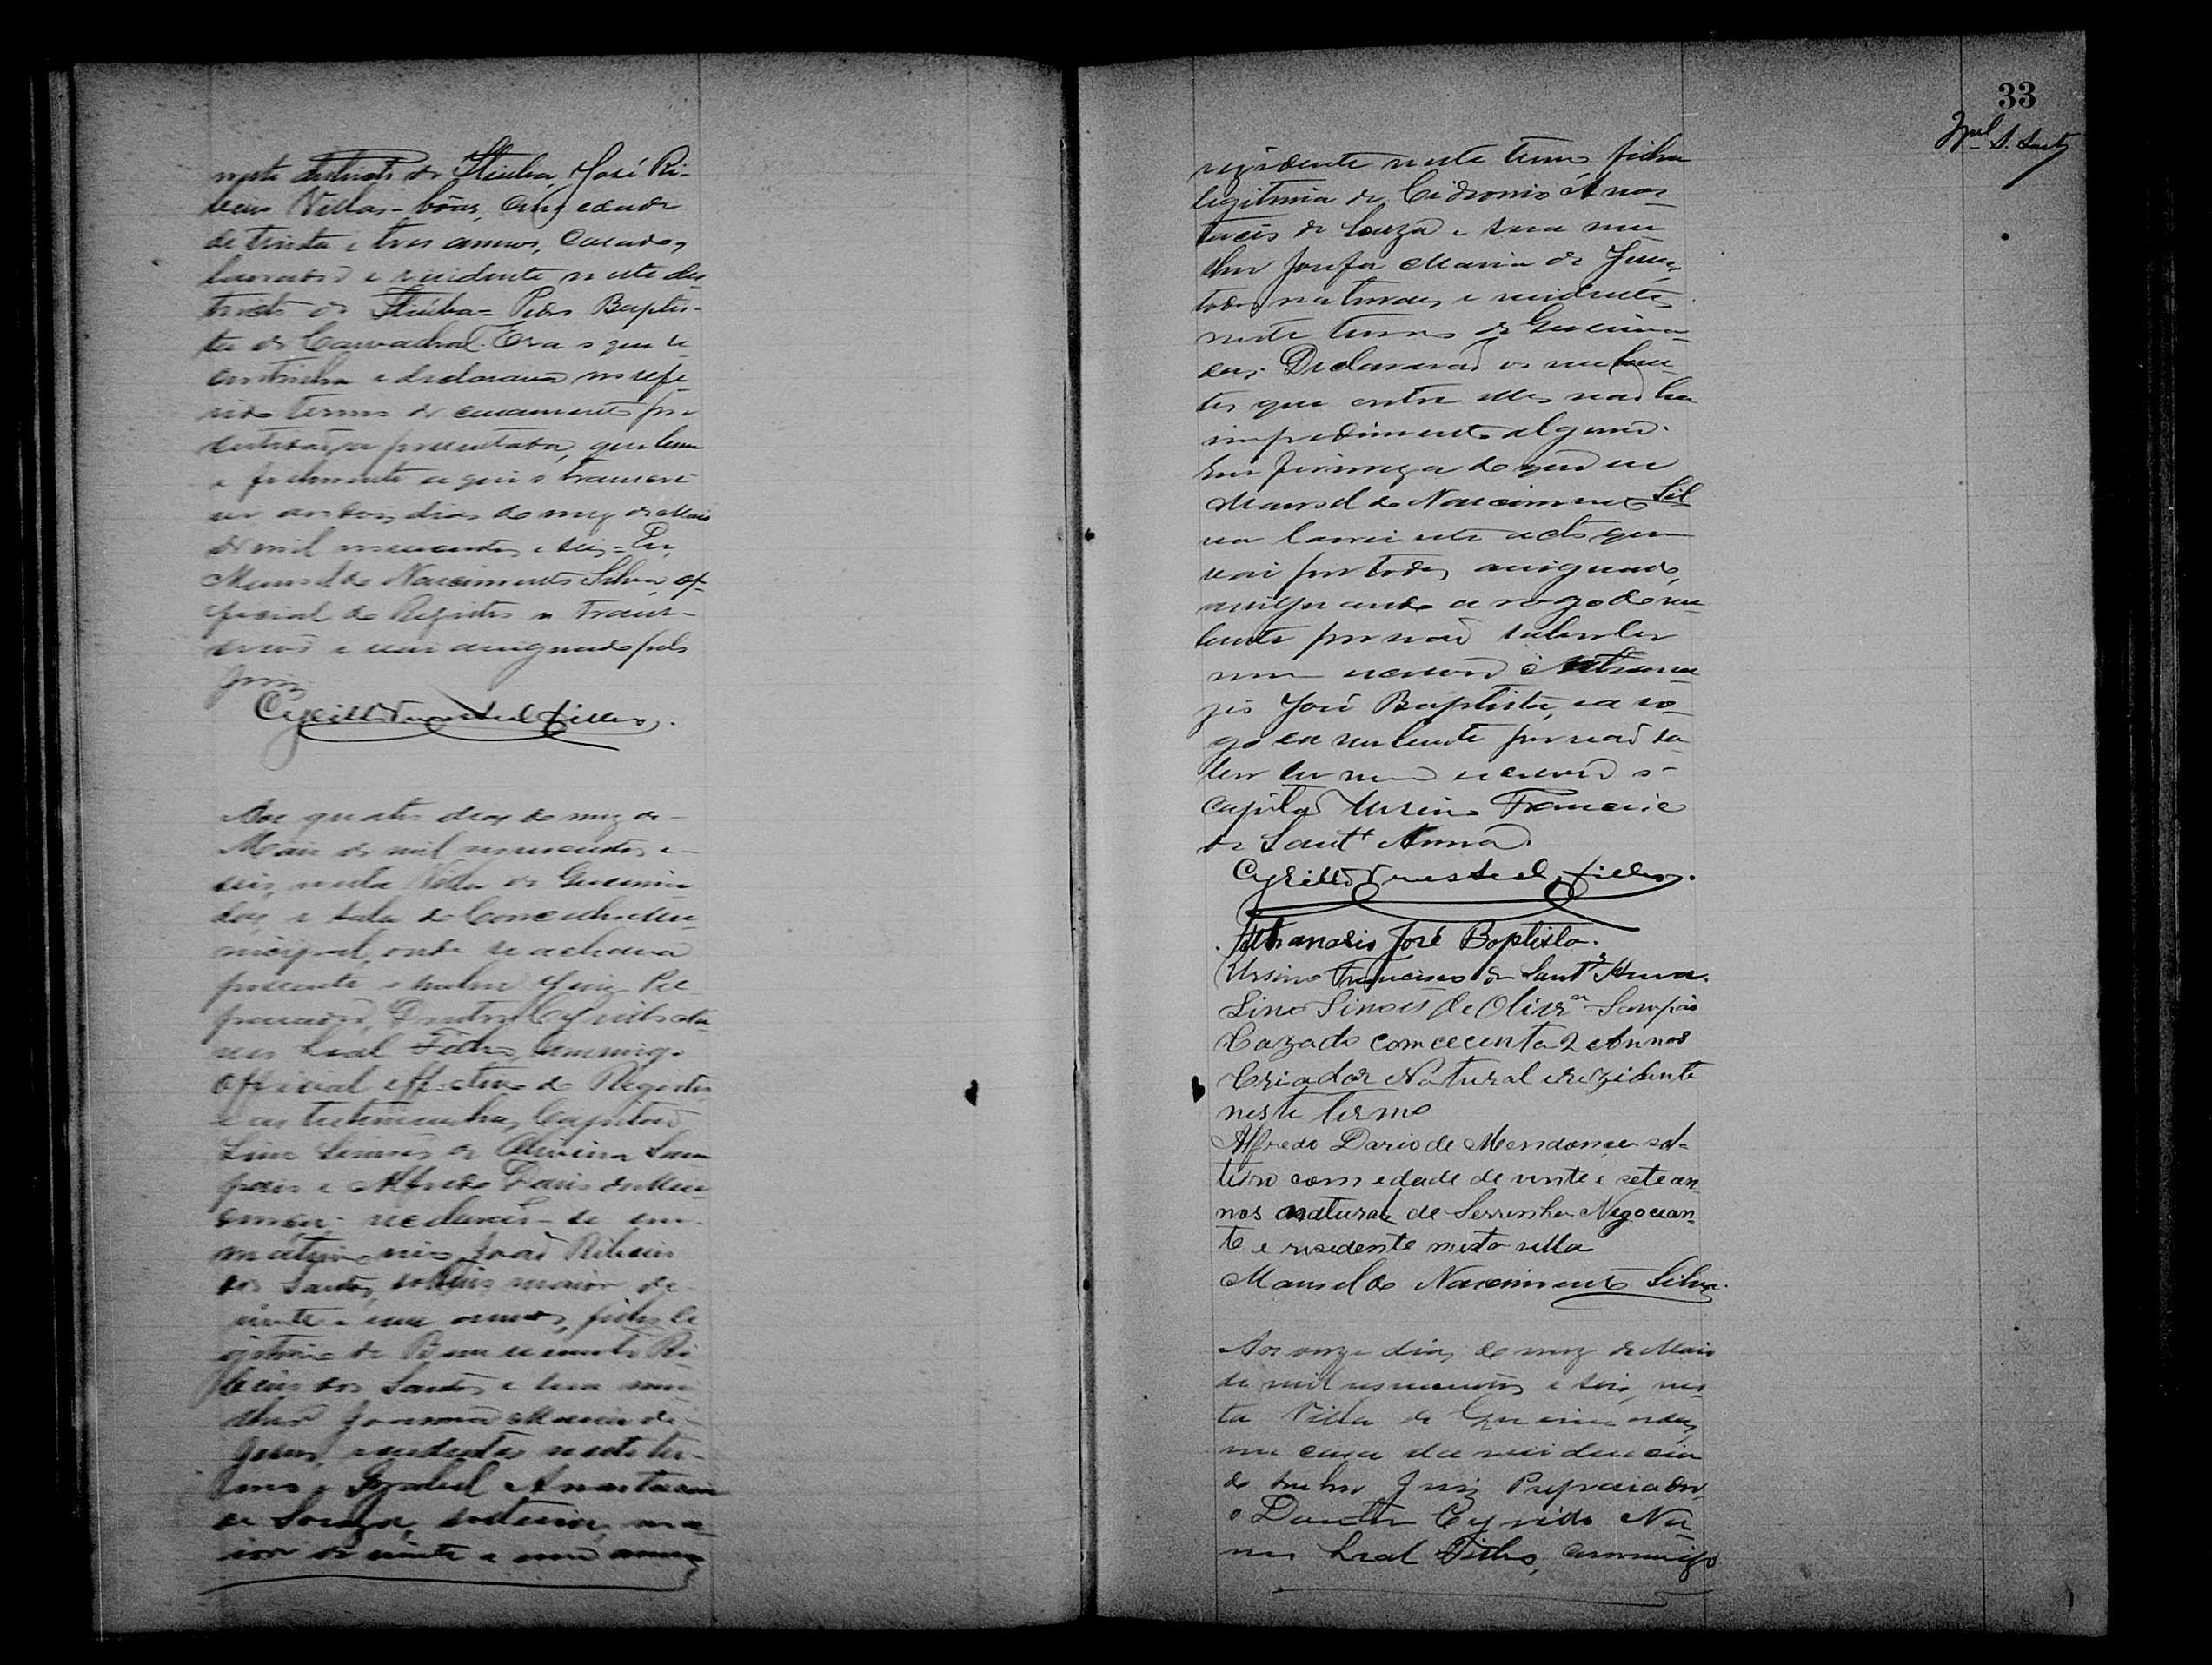 neste districto de Itiuba, José Ri-
beiro Villas-bôas, com edade
de trinta e tres annos, casado,
lavrador e residente neste dis
tricto de Itiúba = Pedro Baptis-
ta de Carvalhal. Era o que se
continha e declarava no refe
rido termo de casamento por
certidão apresentada, que bem
e fielmente aqui o transcre
vi aos dois dias do mez de Maio
de mil novecentos e seis = Eu,
Manoel do Nascimento Silva, of-
ficial do Registro o trans-
crevi e vai assignado pelo
Juiz
Cyrillo Nunes Leal Filho.
Aos quatro dias do mez de
Maio de mil novecentos e
seis, nesta Villa de Queima
das, e sala do Concelho Mu
nicipal, onde se achava
presente o senhor Juiz Pre
parador, Doutor Cyrillo Nu
nes Leal Filho, commigo
Official effectivo do Registro
e as testemunhas, Capitão
Lino Simões de Oliveira Sam
paio e Alfredo Dario de Men
donça: receberão-se em
matrimonio João Ribeiro
dos Santos, solteiro, maior de
vinte e um annos, filho le
gitimo de Ribeiro
dos Santos e sua mu
lher Joanna Maria de
Jesus, residentes neste ter-
mo e Izabel Anastacia
de Souza, solteira, ma
ior de vinte e um annos
33
rezidente neste termo, filha
legitima de Cidronio Anas
tacio de Souza e sua mu
lher Josefa Maria de Jesus,
todos naturaes e residentes
neste termo de Queima
das. Declararão os nuben
tes que entre elles não ha
impedimento algum.
Em firmeza do que eu
Manoel do Nascimento Sil
va lavrei este acto que
vai por todos assignado,
assignando a rogo do nu
bente por não saber ler
nem escrever Athana
zio José Baptista, e a ro
go da nubente por não sa
ber ler nem escrever o
capitão Ursino Francisco
de Sant'Anna.
Cyrillo Nunes Leal Filho.
Athanasio José Baptista.
Ursino Francisco de Sant'Anna.
Lino Simois de Olivra Sampaio
Cazado com cecenta 2 Annos
Criador Natural e rezidente
neste termo
Alfredo Dario de Mendonça sol-
teiro com edade de vinte e sete an
nos natural de Serrinha Negocian
te e residente nesta villa
Manoel do Nascimento Silva.
Aos onze dias do mez de Maio
de mil novecentos e seis, nes
ta Villa de Queimadas,
na casa da residencia
do senhor Juiz Preparador,
o Doutor Cyrillo Nu
nes Leal Filho, commigo